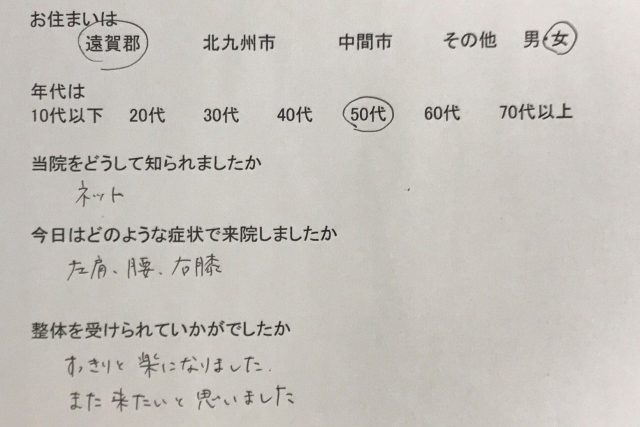 お住まいは
遠賀郡 北九州市 中間市 その他 男・女
年代は
10代以下 20代 30代 40代 50代 60代 70代以上
当院をどうして知られましたか
ネット
今日はどのような症状で来院しましたか
左肩、腰、右膝
整体を受けられていかがでしたか
すっきりと楽になりました.
また来たいと思いました